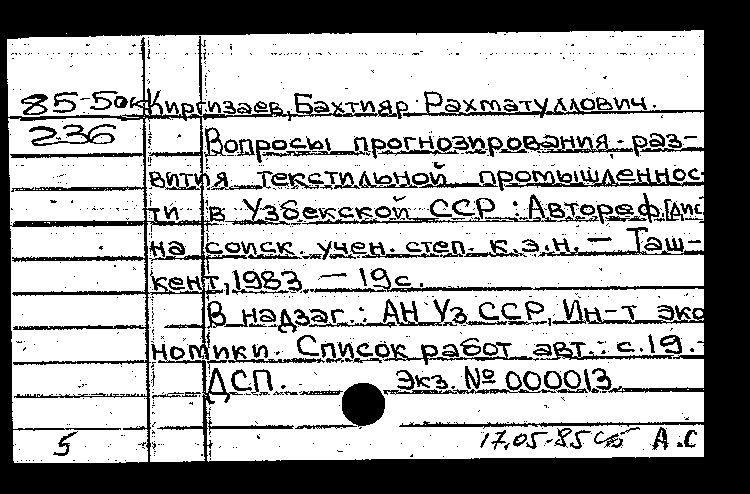 85-5ок Киргизаев, Бахтияр Рахматуллович.
236 Вопросы прогнозирования раз-
вития текстильной промышленнос-
ти в Узбекской ССР : Автореф. [дис
на соиск. учен. степ. к.э.н. — Таш-
кент, 1983 — 19с.
В надзаг.: АН Уз ССР, Ин-т эко
номики. Список работ авт.: с.19.-
ДСП. Экз. № 000013.
5 17.05-85 А.С